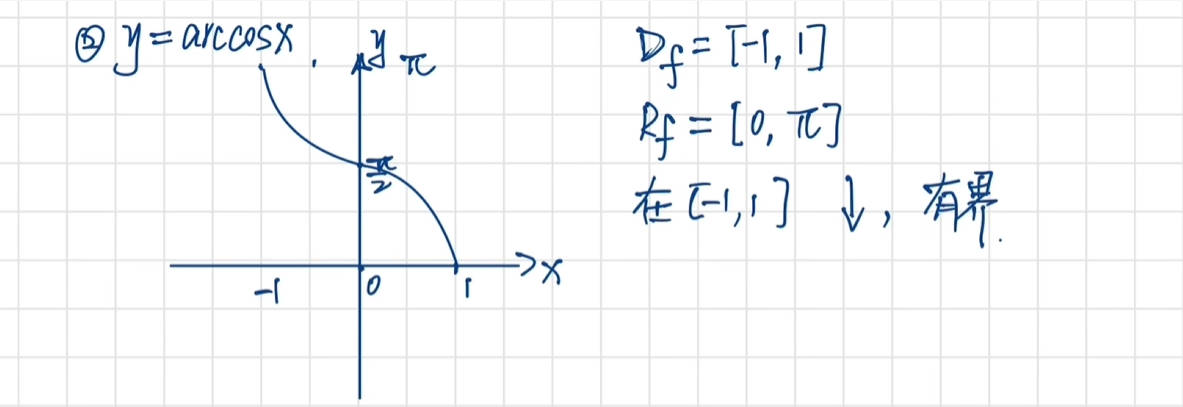 ⑤ y = arccosx.
y π
π/2
-1 0 1 x
Df = [-1, 1]
Rf = [0, π]
在[-1,1] ↓, 有界.